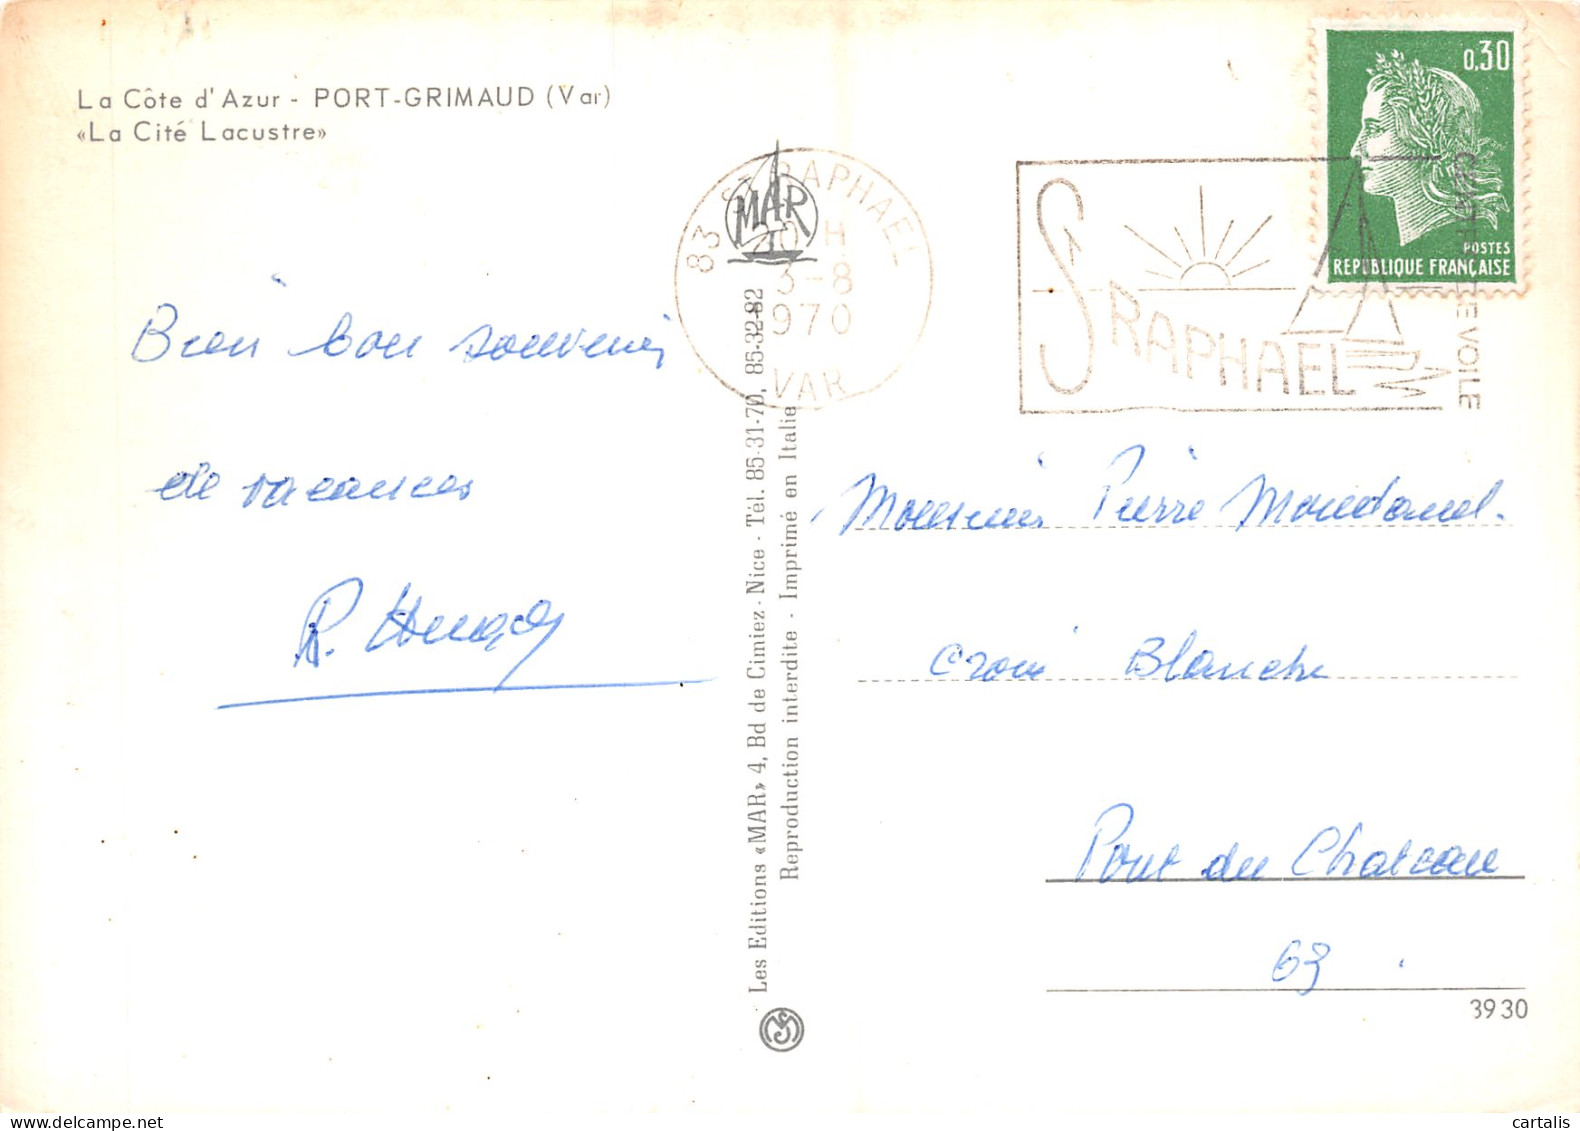 La Côte d'Azur - PORT-GRIMAUD (Var)
«La Cité Lacustre»
Bien bon souvenir
de vacances
MAR
83 ST RAPHAEL
20 H
3-8
1970
VAR
Les Editions «MAR» 4, Bd de Cimiez - Nice - Tél. 85-31-70, 85-32-82
Reproduction interdite - Imprimé en Italie
ST RAPHAEL
VOILE
0,30
POSTES
REPUBLIQUE FRANÇAISE
Monsieur Pierre
Croix Blanche
Pont du Chateau
63
3930
cartalis